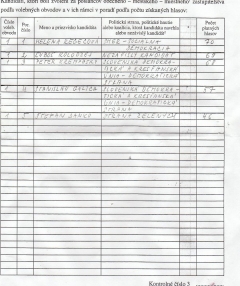 Kandidáti, ktorí boli zvolení za poslancov obecného - mestského - miestneho zastupiteľstva
podľa volebných obvodov a v ich rámci v poradí podľa počtu získaných hlasov:
Číslo voleb. obvodu
Por. číslo
Meno a priezvisko kandidáta
Politická strana, politické hnutie alebo koalícia, ktorá kandidáta navrhla alebo nezávislý kandidát
Počet platných hlasov
1 1 HELENA SMER - SOCIÁLNA 70
DEMOKRACIA
1 2 NEZÁVISLÝ KANDIDÁT 69
1 3 PETER SLOVENSKÁ DEMOKRA- 68
TICKÁ A KRESŤANSKÁ
ÚNIA - DEMOKRATICKÁ
STRANA
1 4 STANISLAV SLOVENSKÁ DEMOKRA- 57
TICKÁ A KRESŤANSKÁ
ÚNIA - DEMOKRATICKÁ
STRANA
1 5 ŠTEFAN DANKO STRANA ZELENÝCH 46
Kontrolné číslo 3